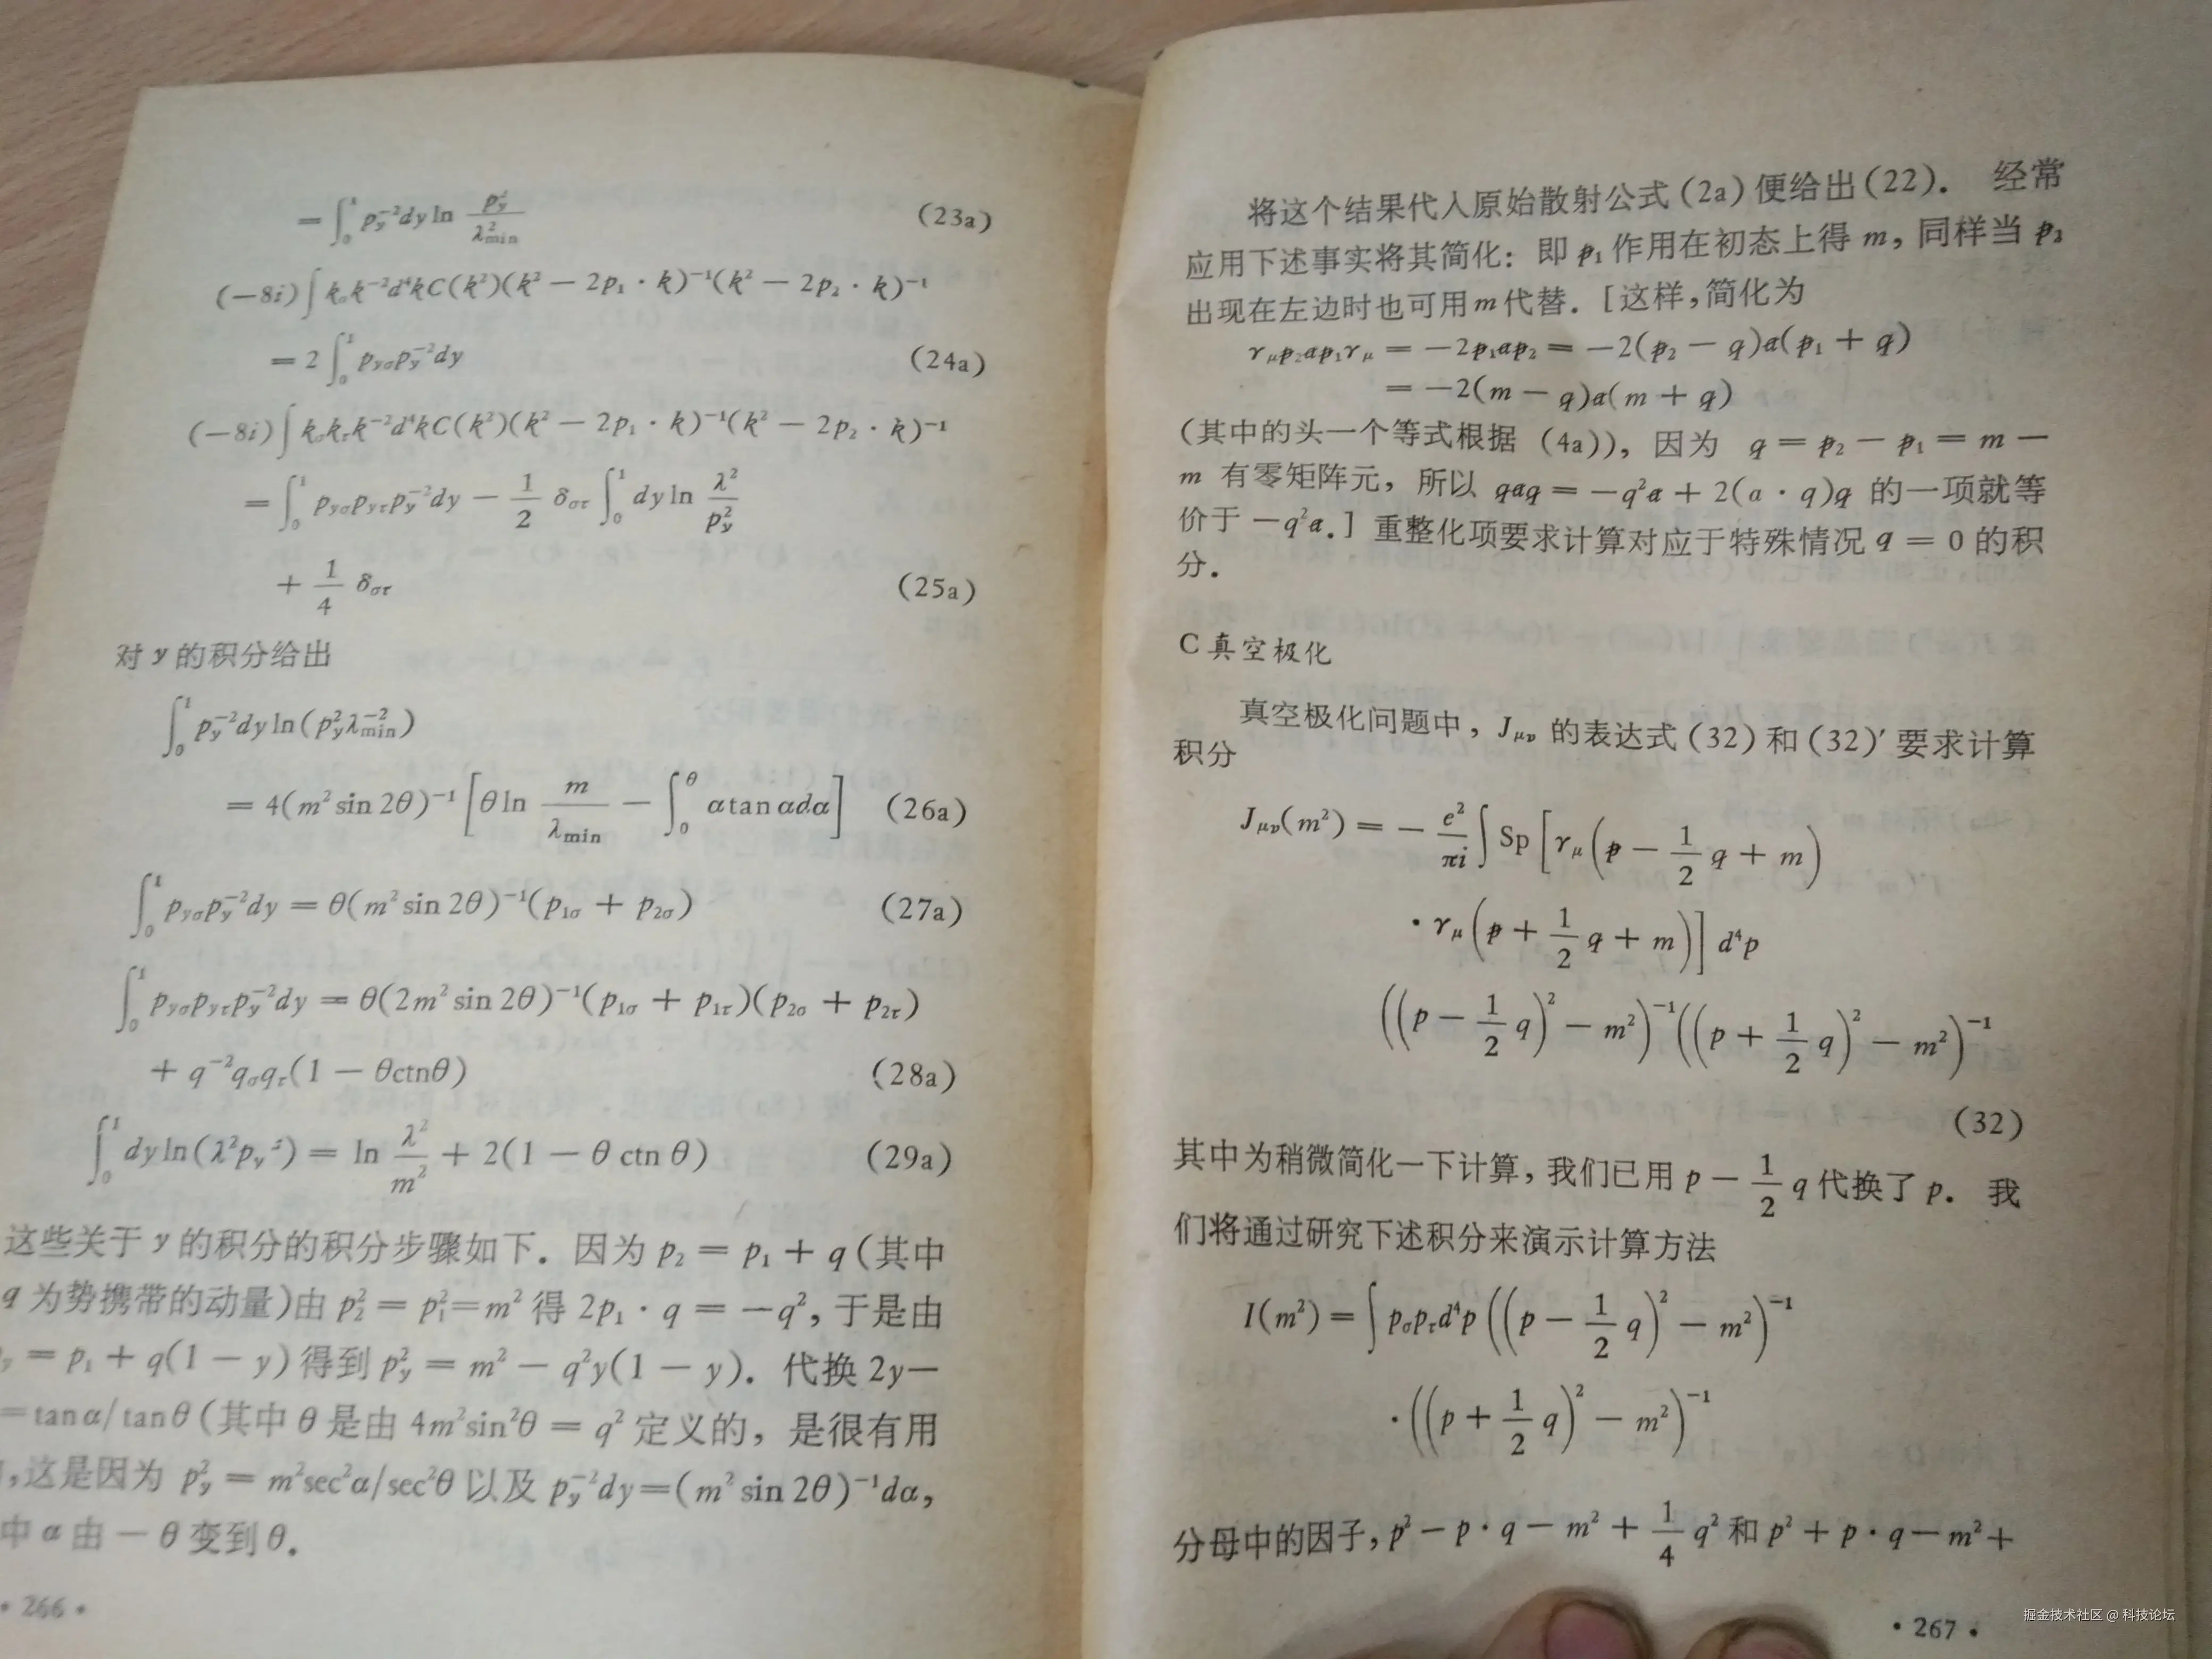 = ∫₀¹ p_y⁻²dy ln p_y²/λ²_min (23a)
(−8i)∫k_σk⁻²d⁴kC(k²)(k² − 2p₁ · k)⁻¹(k² − 2p₂ · k)⁻¹
= 2 ∫₀¹ p_yσ p_y⁻²dy (24a)
(−8i)∫k_σk_τk⁻²d⁴kC(k²)(k² − 2p₁ · k)⁻¹(k² − 2p₂ · k)⁻¹
= ∫₀¹ p_yσ p_yτ p_y⁻²dy − 1/2 δ_στ ∫₀¹ dy ln λ²/p_y²
+ 1/4 δ_στ (25a)
对 y 的积分给出
∫₀¹ p_y⁻²dy ln(p_y²λ⁻²_min)
= 4(m² sin 2θ)⁻¹[θ ln m/λ_min − ∫₀^θ α tan αdα] (26a)
∫₀¹ p_yσ p_y⁻²dy = θ(m² sin 2θ)⁻¹(p₁σ + p₂σ) (27a)
∫₀¹ p_yσ p_yτ p_y⁻²dy = θ(2m² sin 2θ)⁻¹(p₁σ + p₁τ)(p₂σ + p₂τ)
+ q⁻²q_σq_τ(1 − θctnθ) (28a)
∫₀¹ dy ln(λ²p_y⁻²) = ln λ²/m² + 2(1 − θ ctn θ) (29a)
这些关于 y 的积分的积分步骤如下. 因为 p₂ = p₁ + q (其中
q 为势携带的动量)由 p₂² = p₁²=m² 得 2p₁ · q = −q², 于是由
= p₁ + q(1 − y) 得到 p_y² = m² − q²y(1 − y). 代换 2y—
=tanα/tanθ (其中 θ 是由 4m²sin²θ = q² 定义的, 是很有用
,这是因为 p_y² = m²sec²α/sec²θ 以及 p_y⁻²dy=(m² sin 2θ)⁻¹dα,
中 α 由 − θ 变到 θ.
• 266 •
将这个结果代入原始散射公式(2a)便给出(22). 经常
应用下述事实将其简化: 即 p̸₁ 作用在初态上得 m, 同样当 p̸₂
出现在左边时也可用 m 代替. [这样, 简化为
γ_μp̸₂a̸p̸₁γ_μ = −2p̸₁a̸p̸₂ = −2(p̸₂ − q̸)a̸(p̸₁ + q̸)
= −2(m − q̸)a̸(m + q̸)
(其中的头一个等式根据 (4a)), 因为 q̸ = p̸₂ − p̸₁ = m −
m 有零矩阵元, 所以 q̸a̸q̸ = −q²a̸ + 2(a · q)q̸ 的一项就等
价于 −q²a̸.] 重整化项要求计算对应于特殊情况 q = 0 的积
分.
C 真空极化
真空极化问题中, J_μν 的表达式(32)和(32)′要求计算
积分
J_μν(m²) = − e²/πi ∫ Sp [γ_μ(p̸ − 1/2 q̸ + m)
· γ_μ(p̸ + 1/2 q̸ + m)] d⁴p
((p − 1/2 q)² − m²)⁻¹((p + 1/2 q)² − m²)⁻¹
(32)
其中为稍微简化一下计算, 我们已用 p − 1/2 q 代换了 p. 我
们将通过研究下述积分来演示计算方法
I(m²) = ∫ p_σp_τd⁴p ((p − 1/2 q)² − m²)⁻¹
· ((p + 1/2 q)² − m²)⁻¹
分母中的因子, p² − p · q − m² + 1/4 q² 和 p² + p · q − m² +
• 267 •
掘金技术社区 @ 科技论坛